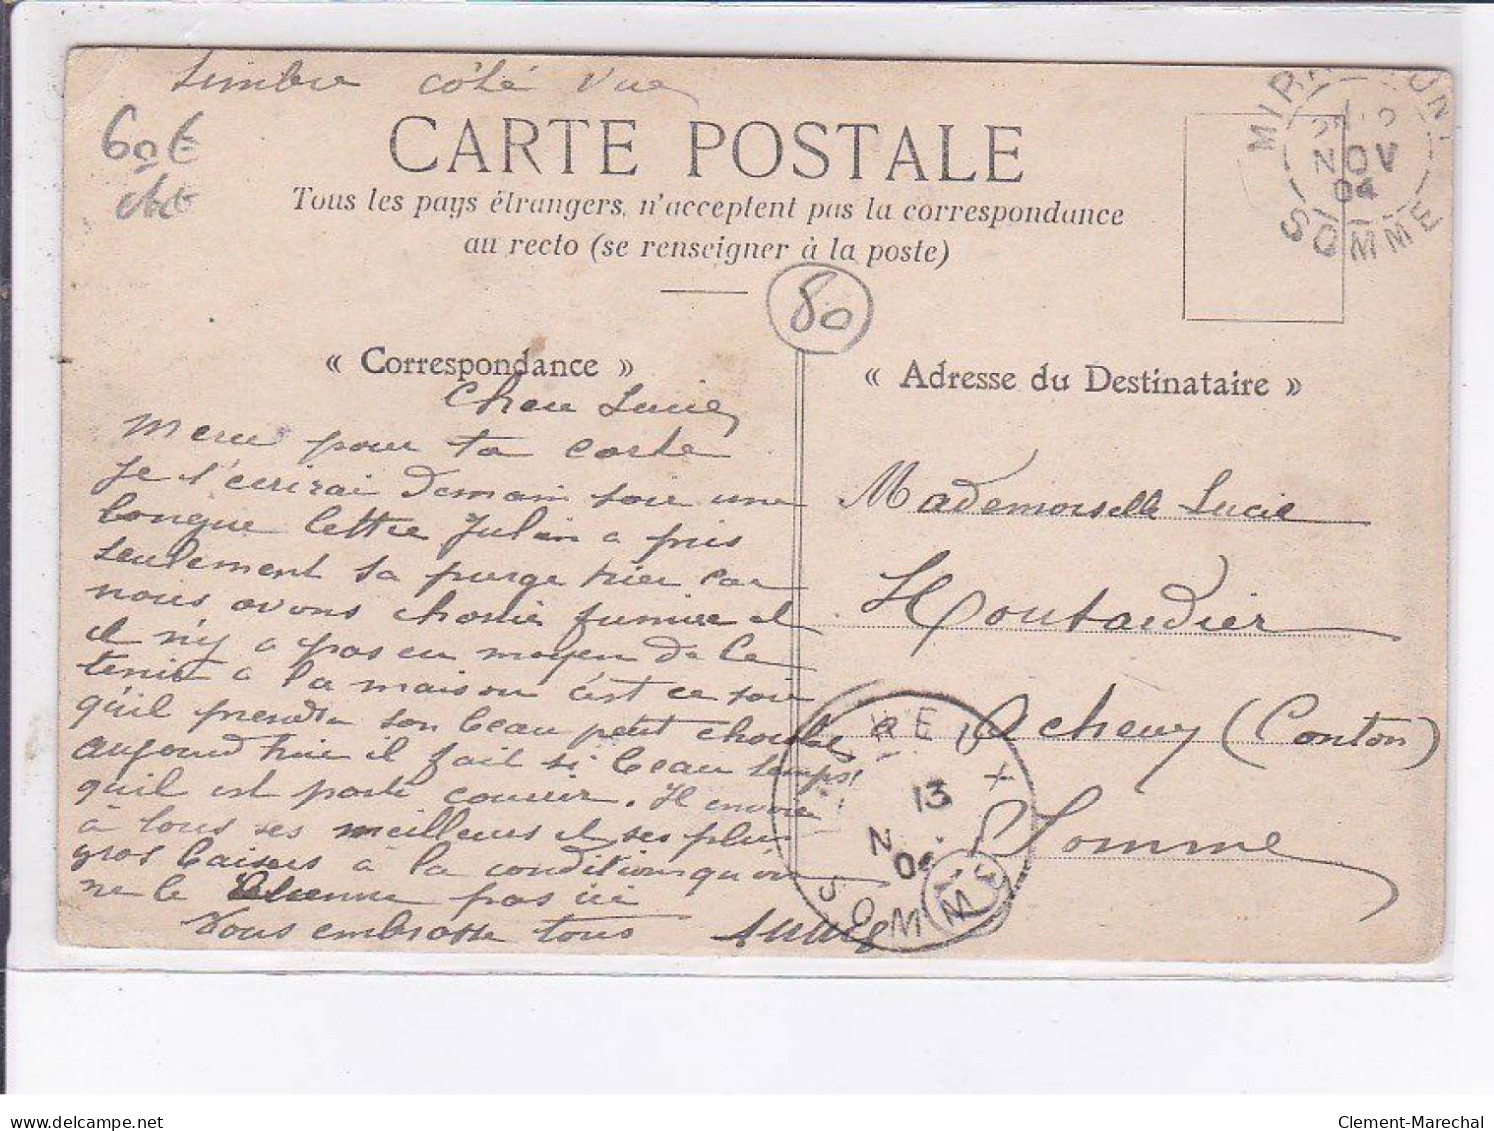 timbre côté vue
60€
CARTE POSTALE
Tous les pays étrangers, n'acceptent pas la correspondance
au recto (se renseigner à la poste)
NOV
04
SOMME
80
« Correspondance »
« Adresse du Destinataire »
Chère Lucie,
Merci pour ta carte
Je t'écrirai demain soir une
longue lettre Julien a pris
seulement sa purge hier car
nous avons choisi fumier et
il n'y a pas eu moyen de le
tenir à la maison c'est ce soir
qu'il prendra son beau petit
aujourd'hui il fait si beau temps
qu'il est parti courir. Il envoie
à tous ses meilleurs et ses plus
gros baisers à la condition qu'on
ne le pas ici
Vous embrasse tous
Mademoiselle Lucie
Houtardier
à Acheux (Canton)
Somme
13
N
04
SOMME
delcampe.net
Clement-Marechal